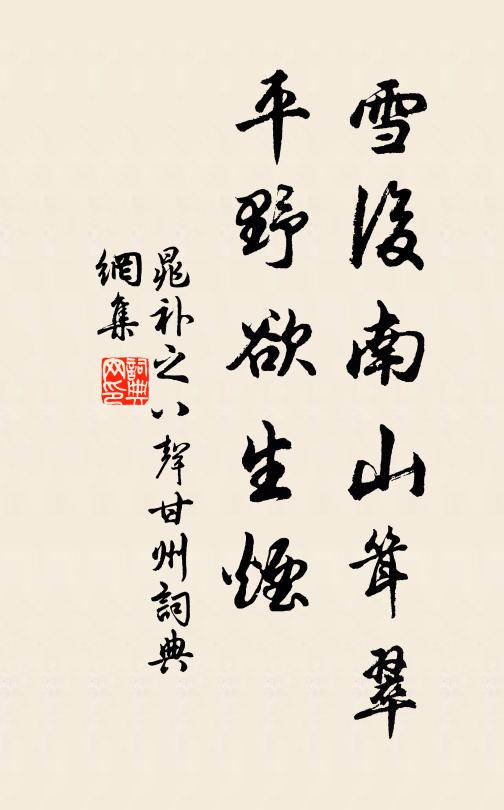 雪後南山耸翠
平野欲生煙
晁补之八聲甘州詞典
網集
詞典
网印